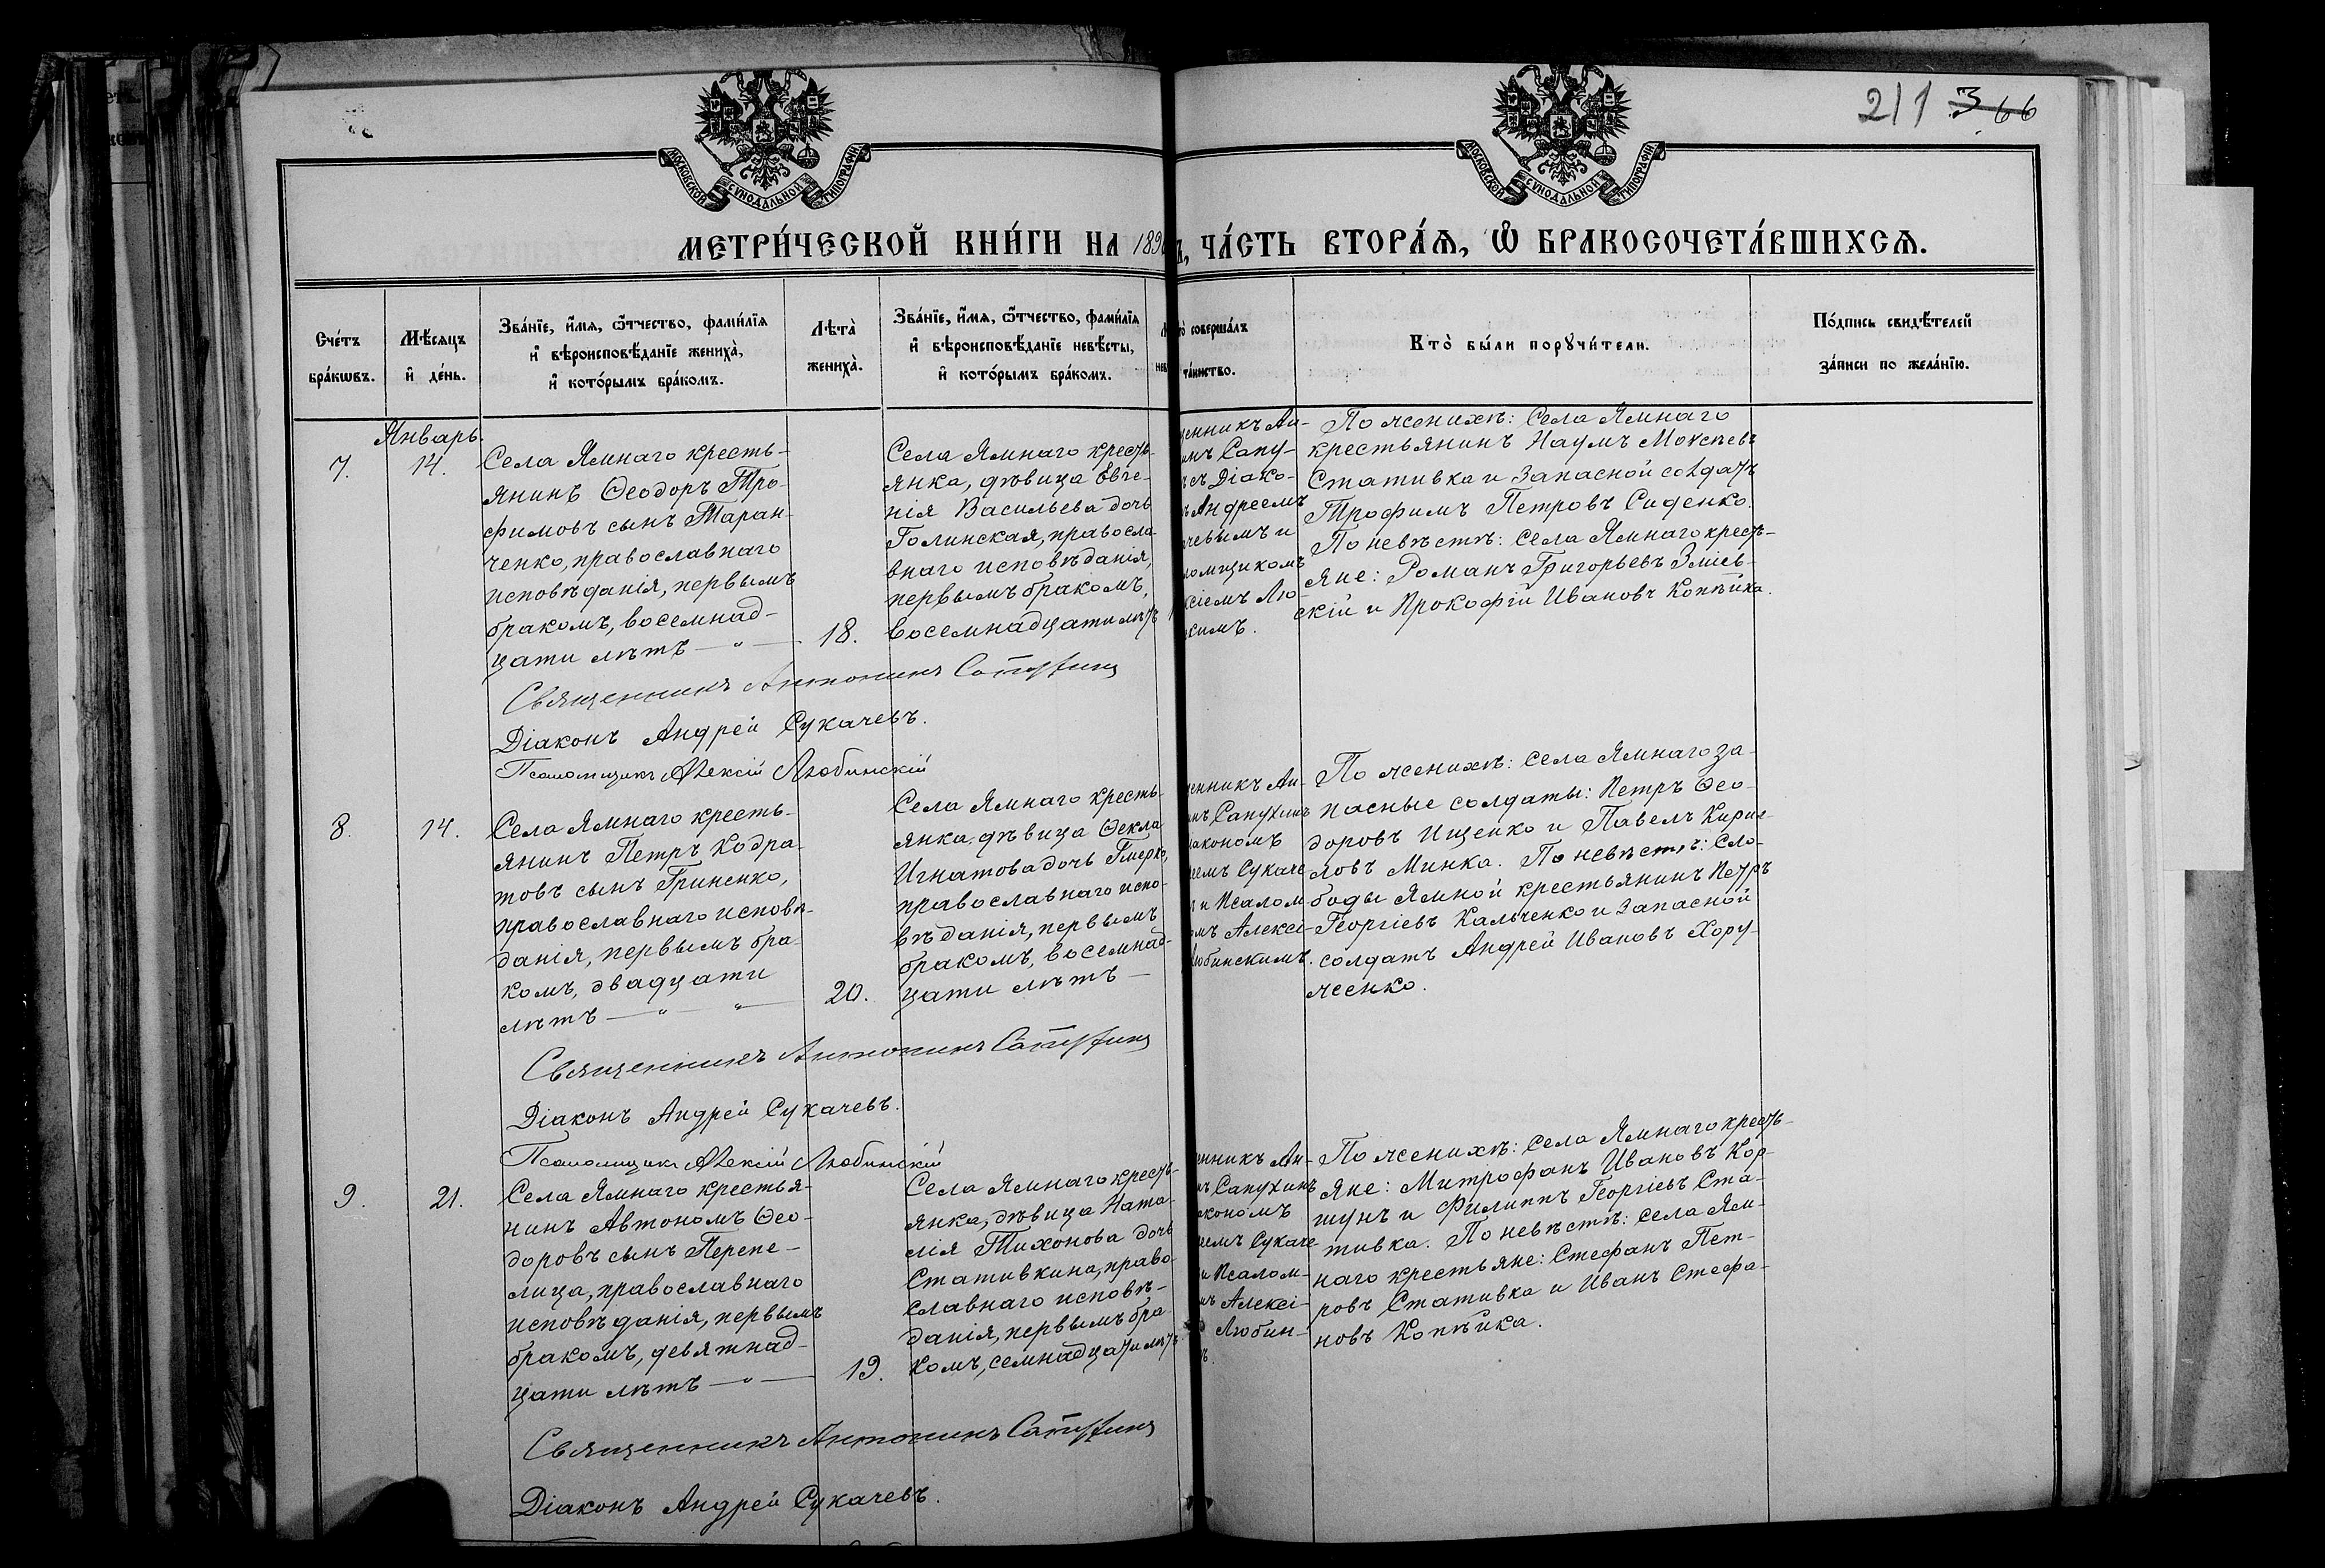 211 366
МОСКОВСКОЙ СУНОДАЛЬНОЙ ТИПОГРАФІИ
МОСКОВСКОЙ СУНОДАЛЬНОЙ ТИПОГРАФІИ
МЕТРИ́ЧЕСКОЙ КНИ́ГИ НА 189
ЧА́СТЬ ВТОРА́Ѧ, Ѿ БРАКОСОЧЕТА́ВШИХСѦ.
Сче́тъ
бра́кѡвъ.
Мѣ́сѧцъ
и҆ де́нь.
Зва́нїе, и҆́мѧ, ѻ҆́тчество, фами́лїѧ
и҆ вѣроисповѣ́данїе жениха̀,
и҆ кото́рымъ бра́комъ.
Лѣта̀
жениха̀.
Зва́нїе, и҆́мѧ, ѻ҆́тчество, фами́лїѧ
и҆ вѣроисповѣ́данїе невѣ́сты,
и҆ кото́рымъ бра́комъ.
то̀ соверша́лъ
та́инство.
Кто̀ бы́ли порꙋчи́тели.
По́дпись свидѣ́телей
за́писи по жела́нїю.
Январь.
7.
14.
Села Ямнаго кресть-
янинъ Ѳеодоръ Тро-
фимовъ сынъ Таран-
ченко, православнаго
исповѣданія, первымъ
бракомъ, восемнад-
цати лѣтъ — " —
18.
Села Ямнаго кресть-
янка, дѣвица Евге-
нія Васильева дочь
Голинская, правосла-
внаго исповѣданія,
первымъ бракомъ,
восемнадцати лѣтъ
енникъ Ан-
инъ Сапу-
съ Діако-
ъ Андреемъ
чевымъ и
ломщикомъ
ксіемъ Лю-
скимъ.
По женихѣ: Села Ямнаго
крестьянинъ Наумъ Моѵсеевъ
Стативка и запасной солдатъ
Трофимъ Петровъ Сиденко.
По невѣстѣ: Села Ямнаго кресть-
яне: Романъ Григорьевъ Зміев-
скій и Прокофій Ивановъ Копѣйка.
Священникъ Антонинъ Сапухинъ
Діаконъ Андрей Сукачевъ.
Псаломщикъ Алексій Любинскій
8.
14.
Села Ямнаго кресть-
янинъ Петръ Кодра-
товъ сынъ Гриненко,
православнаго исповѣ-
данія, первымъ бра-
комъ, двадцати
лѣтъ — " — " —
20.
Села Ямнаго кресть-
янка, дѣвица Ѳекла
Игнатова дочь
православнаго испо-
вѣданія, первымъ
бракомъ, восемнад-
цати лѣтъ —
енникъ Ан-
нъ Сапухинъ
іакономъ
еемъ Сукаче
ъ и Псалом-
омъ Алексі-
Любинскимъ.
По женихѣ: Села Ямнаго за-
пасные солдаты: Петръ Ѳео-
доровъ Ищенко и Павелъ Кирил-
ловъ Минка. По невѣстѣ: Сло-
боды Ямной крестьянинъ Петръ
Георгіевъ Кальченко и запасной
солдатъ Андрей Ивановъ Хору-
женко.
Священникъ Антонинъ Сапухинъ
Діаконъ Андрей Сукачевъ.
Псаломщикъ Алексій Любинскій
9.
21.
Села Ямнаго крестья-
нинъ Автономъ Ѳео-
доровъ сынъ Перепе-
лица, православнаго
исповѣданія, первымъ
бракомъ, девятнад-
цати лѣтъ — " —
19.
Села Ямнаго кресть-
янка, дѣвица Ната-
лія Тихонова дочь
Стативкина, право-
славнаго исповѣ-
данія, первымъ бра-
комъ, семнадцати лѣтъ
енникъ Ан-
нъ Сапухинъ
акономъ
еемъ Сукаче-
и Псалом-
мъ Алексі-
Любин-
ъ.
По женихѣ: Села Ямнаго кресть-
яне: Митрофанъ Ивановъ Кор-
шунъ и Филиппъ Георгіевъ Ста-
тивка. По невѣстѣ: Села Ям-
наго крестьяне: Стефанъ Пет-
ровъ Стативка и Иванъ Стефа-
новъ Копѣйка.
Священникъ Антонинъ Сапухинъ
Діаконъ Андрей Сукачевъ.